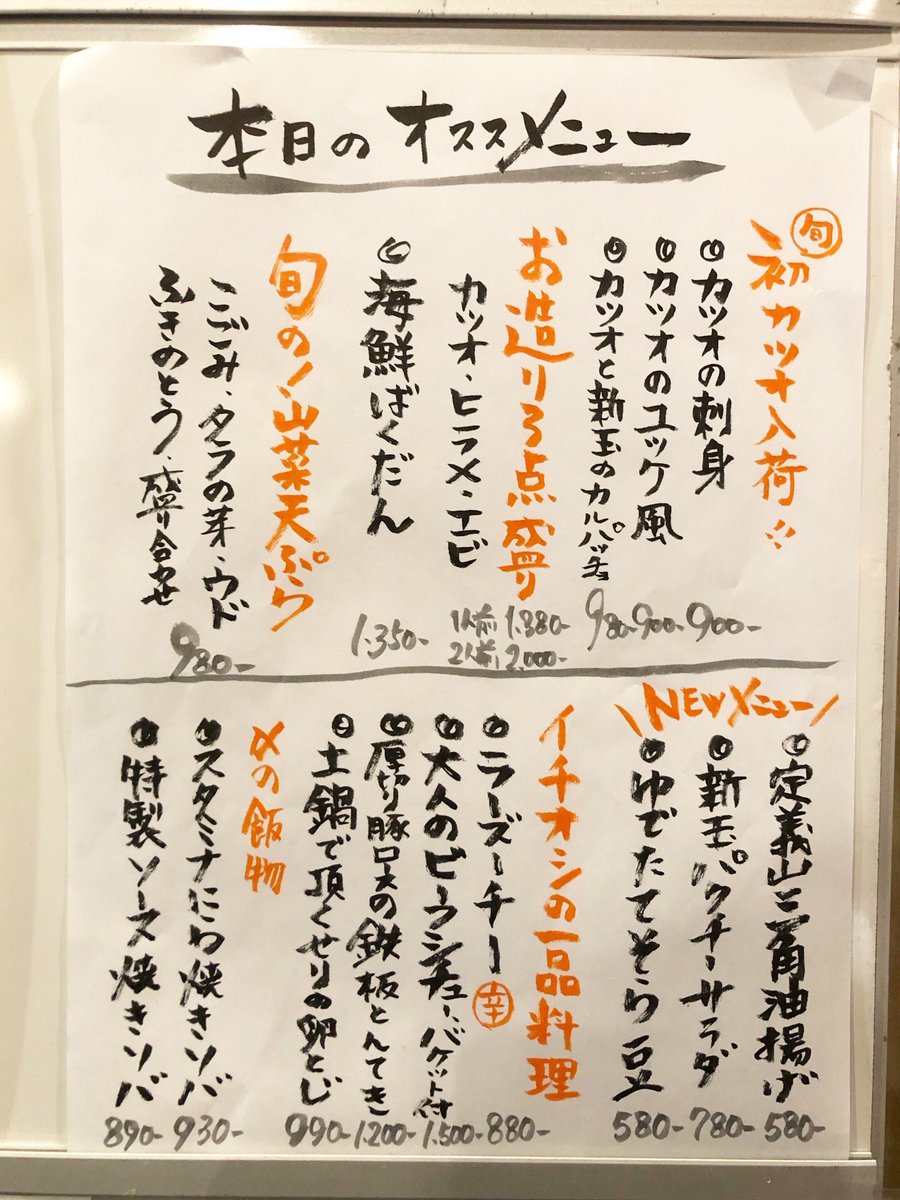 本日のオススメメニュー
旬
初カツオ入荷!!
カツオの刺身 900-
カツオのユッケ風 900-
カツオと新玉のカルパッチョ 980-
お造り3点盛り
カツオ・ヒラメ・エビ
1人前 1.380-
2人前 2.000-
海鮮ばくだん 1.350-
旬の!山菜天ぷら
こごみ・タラの芽・ウド
ふきのとう・盛り合わせ
980-
\NEWメニュー/
定義山三角油揚げ 580-
新玉パクチーサラダ 780-
ゆでたてそら豆 580-
イチオシの一品料理
ラーズーチー 辛 880-
大人のビーフシチュー、バケット付 1.500-
厚切り豚ロースの鉄板とんてき 1.200-
土鍋で頂くせりの卵とじ 990-
〆の飯物
スタミナにわ焼きソバ 930-
特製ソース焼きソバ 890-